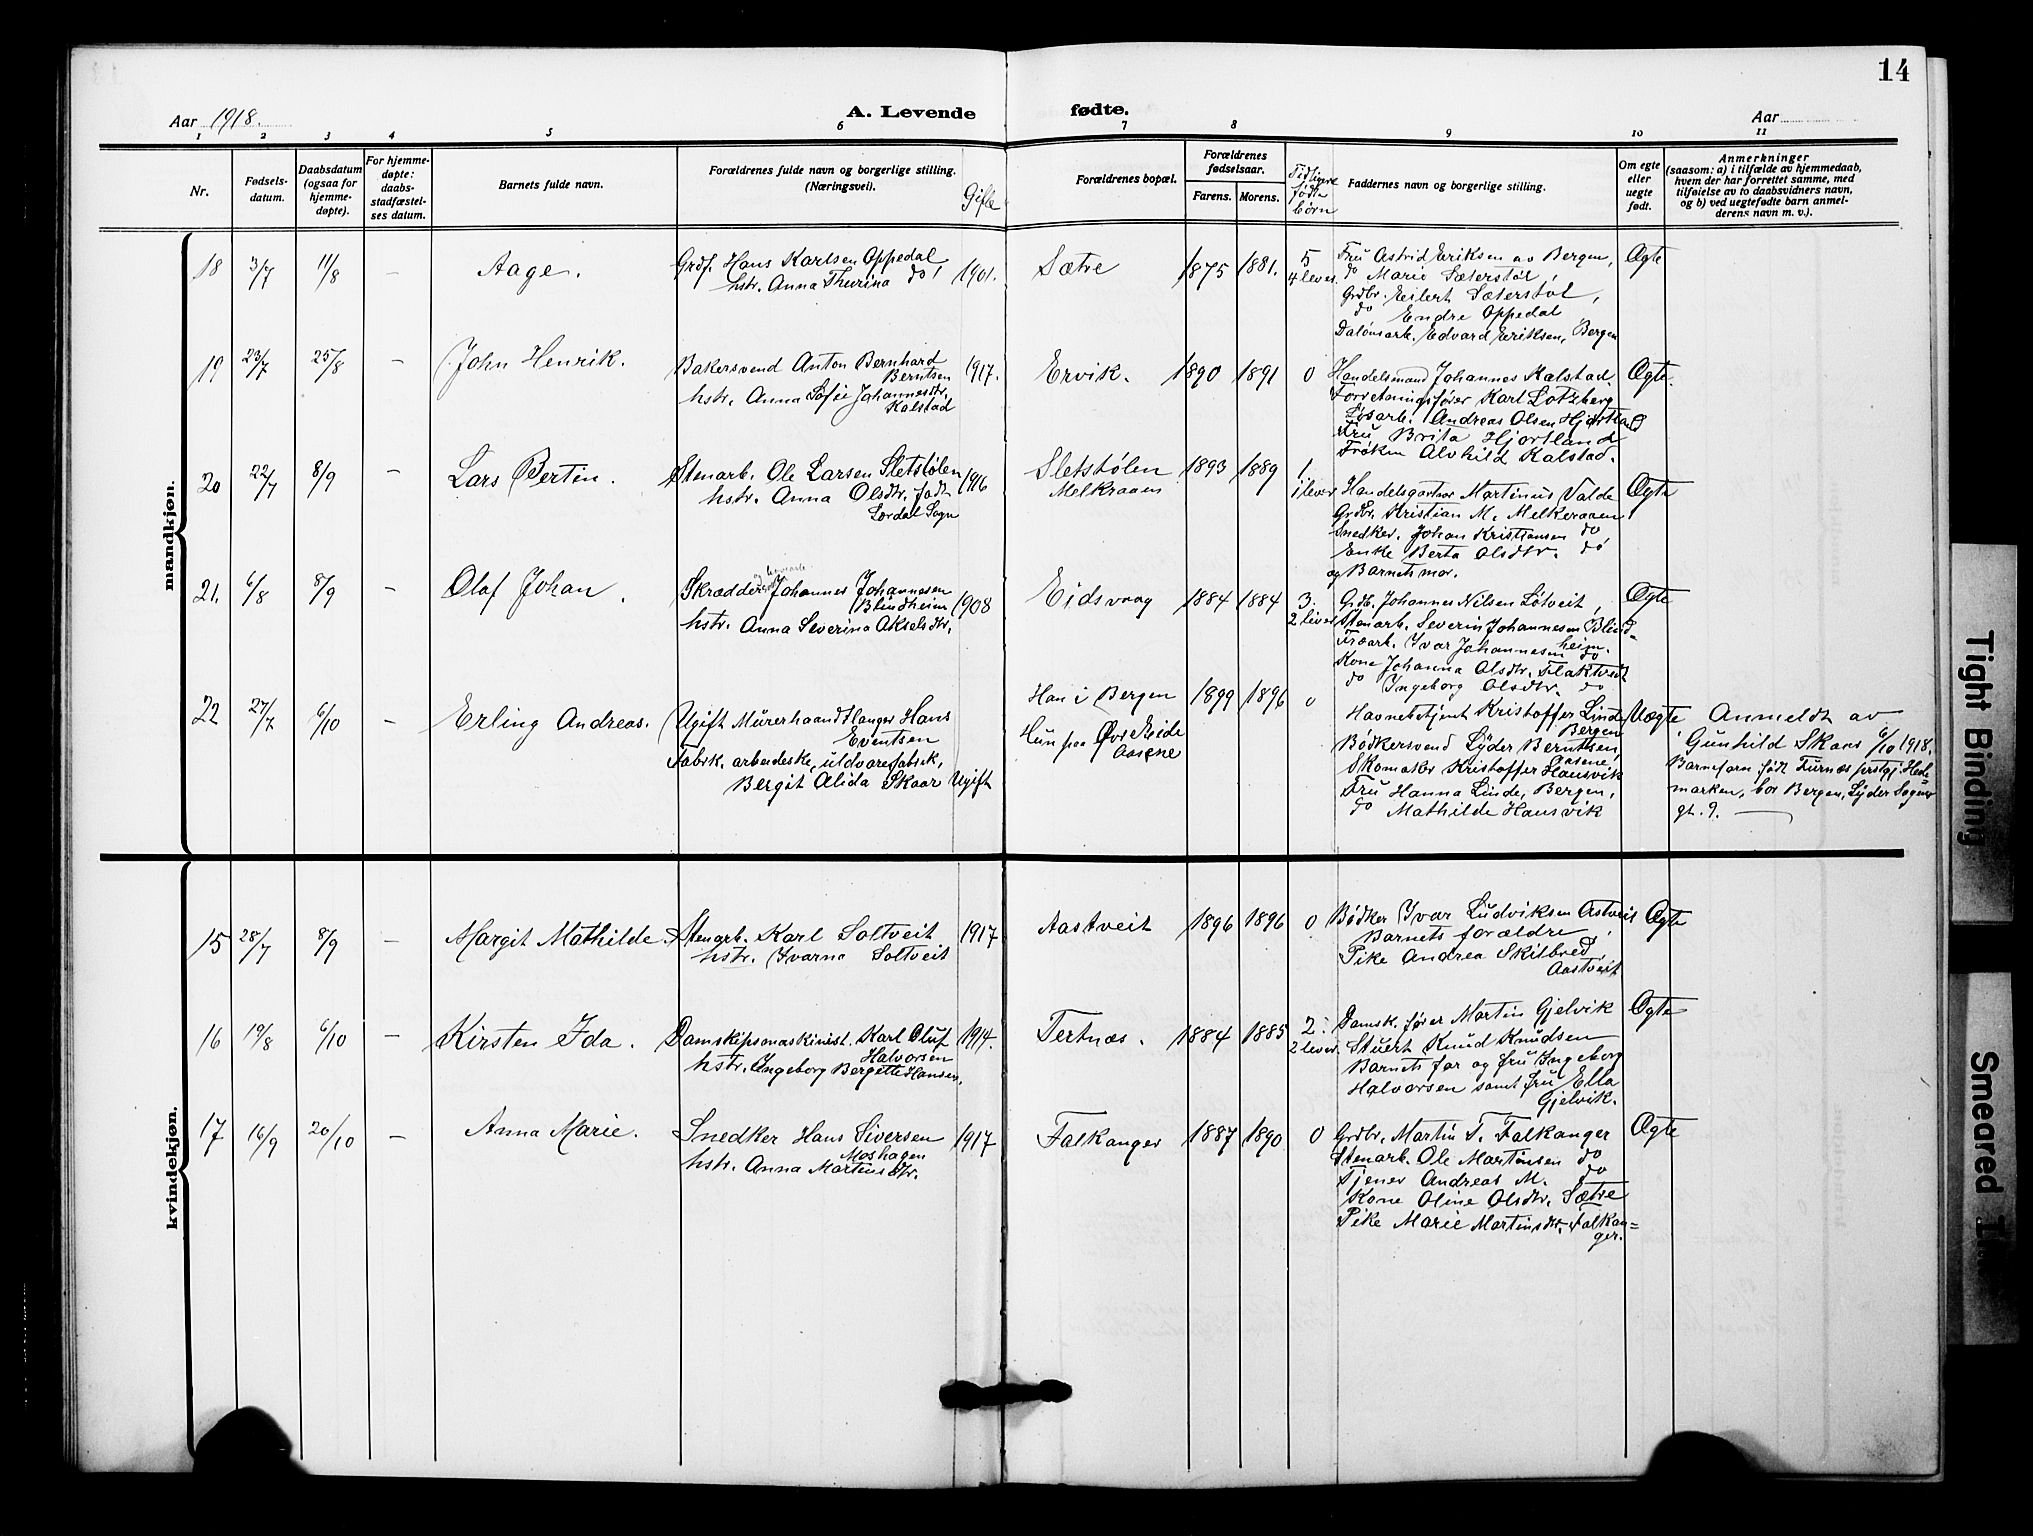 14
Aar 1918.
A. Levende fødte.
Aar
1 2 3 4 5 6 7 8 9 10 11
Nr.
Fødsels-
datum.
Daabsdatum
(ogsaa for
hjemme-
døpte).
For hjemme-
døpte:
daabs-
stadfæstel-
ses datum.
Barnets fulde navn.
Forældrenes fulde navn og borgerlige stilling.
(Næringsvei).
Gifte
Forældrenes bopæl.
Forældrenes
fødselsaar.
Farens. Morens.
Tidligere
fødte
børn
Faddernes navn og borgerlige stilling.
Om egte
eller
uegte
født.
Anmerkninger
(saasom: a) i tilfælde av hjemmedaab,
hvem der har forrettet samme, med
tilføielse av to daabsvidners navn,
og b) ved uegtefødte barn anmel-
derens navn m. v.).
mandkjøn.
18 3/7 11/8 – Aage.
Grdf. Hans Karlsen Oppedal
hstr. Anna Thurina do 1901.
Sætre 1875 1881. 5
4 lever.
Fru Astrid Eriksen av Bergen,
do Marie Sæterstøl,
Grdbr. Eilert Sæterstøl,
do Endre Oppedal
Edvard Eriksen, Bergen
Ægte
19 23/7 25/8 – John Henrik.
Bakersvend Anton Bernhard
Berntsen
hstr. Anna Sofie Johannesdtr.
Kalstad
1917.
Ervik. 1890 1891 0
Handelsmand Johannes Kalstad
Forretningsfører Karl Lotzberg
Løsarb. Andreas Olsen Hjortland
Fru Brita Hjortland
Frøken Alvhild Kalstad.
Ægte.
20 22/7 8/9 – Lars Bertin.
Stenarb. Ole Larsen Sletstølen
hstr. Anna Olsdtr. født
Lærdal Sogn
1916
Sletstølen
Melkraaen
1893 1889 1.
1 lever
Handelsgartner Martinus Valde
Grdbr. Kristian M. Melkeraaen
Snedker. Johan Kristiansen do
Enke Berta Olsdtr. do
og Barnets mor.
Ægte
21. 6/8 8/9 – Olaf Johan.
Skrædder Johannes Johannesen
Blindheim
hstr. Anna Severina Akselsdtr.
1908
Eidsvaag 1884 1884 3.
2 lever
Grdb. Johannes Nilsen Løtveit,
Stenarb. Severin Johannesen Blind-
heim.
Træarb. Ivar Johannesen do
Kone Johanna Olsdtr. Flaktveit
do Ingeborg Olsdtr. do
Ægte
22 27/7 6/10 – Erling Andreas.
Ugift Murerhaandlanger Hans
Eventsen
Fabrk. arbeideske, uldvarefabrik,
Bergit Alida Skaar Ugift
Han i Bergen
Hun paa Øvr Eide
Aasene
1899 1896 0
Havnebetjent Kristoffer Linde
Bergen
Bødkersvend Lyder Berntsen,
Aasene,
Skomaker Kristoffer Hansvik
Fru Hanna Linde, Bergen,
do Mathilde Hansvik
Uægte
Anmeldt av
Gunhild Skaar 6/10 1918.
Barnefarn født Furnæs prstgj. Hede-
marken, bor Bergen, Lyder Sagens
gt. 9.
kvindekjøn.
15 28/7 8/9 – Margit Mathilde.
Stenarb. Karl Soltveit
hstr. Ivarna Soltveit
1917
Aastveit 1896 1896 0
Bødker Ivar Ludviksen Astveit
Barnets forældre,
Pike Andrea Skilbred,
Aastveit
Ægte
16 19/8 6/10 – Kirsten Ida.
Damskipsmaskinist. Karl Oluf
Halvorsen
hstr. Ingeborg Bergette Hansen.
1914.
Tertnæs. 1884 1885 2.
2 lever.
Damsk. fører Martin Gjelvik
Stuert Knud Knudsen
Barnets far og fru Ingeborg
Halvorsen samt fru Ella
Gjelvik.
Ægte
17 16/9 20/10 – Anna Marie.
Snedker Hans Siversen
Moshagen
hstr. Anna Martinsdtr.
1917
Falkanger 1887 1890 0
Grdbr. Martin T. Falkanger
Stenarb. Ole Martinssen do
Tjener Andreas M. do
Kone Oline Olsdtr. Sætre
Pike Marie Martinsdtr. Falkan=
ger.
Ægte
Tight Binding
Smeared